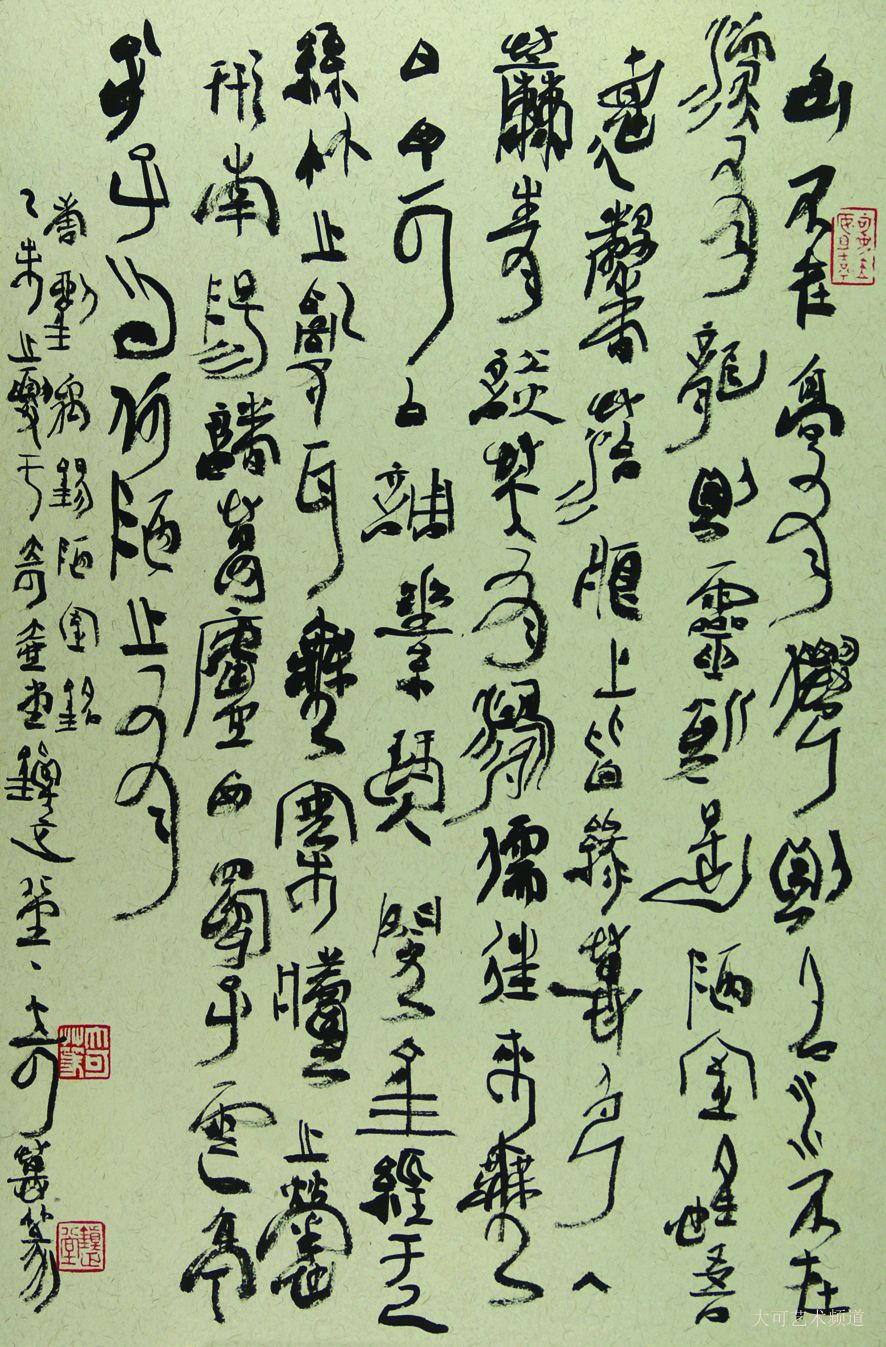 山不在高有僊則名水不在
深有龍則靈斯是陋室惟吾
德馨苔痕上階綠草色入
簾青談笑有鴻儒往來無
白丁可以調素琴閱金經無
絲竹之亂耳無案牘之勞
形南陽諸葛廬西蜀子雲亭
孔子曰何陋之有
劉禹錫陋室銘
乙未之夏于堂大可草篆
大可艺术频道